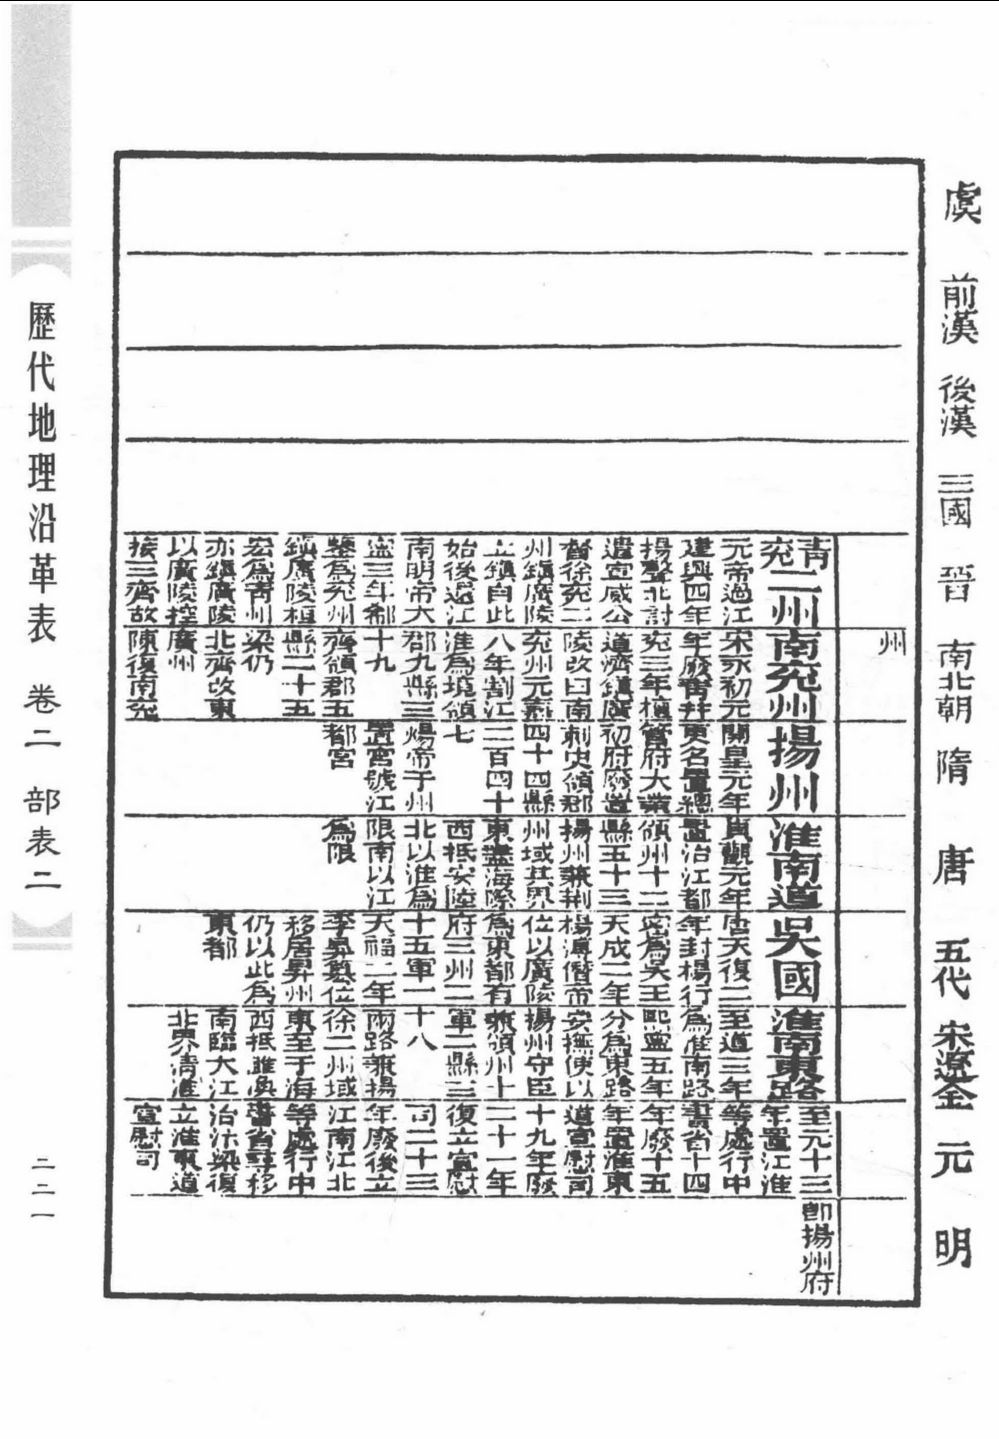 虞
前漢
後漢
三國
晉
南北朝
隋
唐
五代
宋遼金
元
明
州
青兗二州
元帝過江
建興四年
揚聲北討
遣宣威公
督徐兗二
州鎮廣陵
立鎮自此
始後還江
南明帝大
寧三年郗
鑒為兗州
鎮廣陵桓
宏為青州
亦鎮廣陵
以廣陵控
接三齊故
南兗州
宋永初元
年廢青并
兗三年檀
道濟鎮廣
陵改曰南
兗州元嘉
八年割江
淮為境領
郡九縣三
十九
齊領郡五
縣二十五
梁仍
北齊改東
廣州
陳復南兗
揚州
開皇元年
更名置總
管府大業
初府廢道
刺史領郡
四十四縣
二百四十
七
煬帝于州
置宮號江
都宮
淮南道
貞觀元年
置治江都
領州十二
縣五十三
揚州兼荆
州域其界
東盡海際
西抵安陸
北以淮為
限南以江
為限
吳國
唐天復二
年封楊行
密為吳王
天成二年
楊溥僭帝
位以廣陵
為東都有
府三州二
十五軍一
天福二年
李昪簒位
移居昇州
仍以此為
東都
淮南東路
至道三年
為淮南路
熙寧五年
分為東路
安撫使以
揚州守臣
兼領州十
軍二縣三
十八
兩路兼揚
徐二州域
東至于海
西抵濉渙
南臨大江
北界清淮
至元十三
年置江淮
等處行中
書省十四
年廢十五
年置淮東
道宣慰司
十九年廢
二十一年
復立宣慰
司二十三
年廢後立
江南江北
等處行中
書省尋移
治汴梁復
立淮東道
宣慰司
即揚州府
歷代地理沿革表 卷二 部表二
二二一